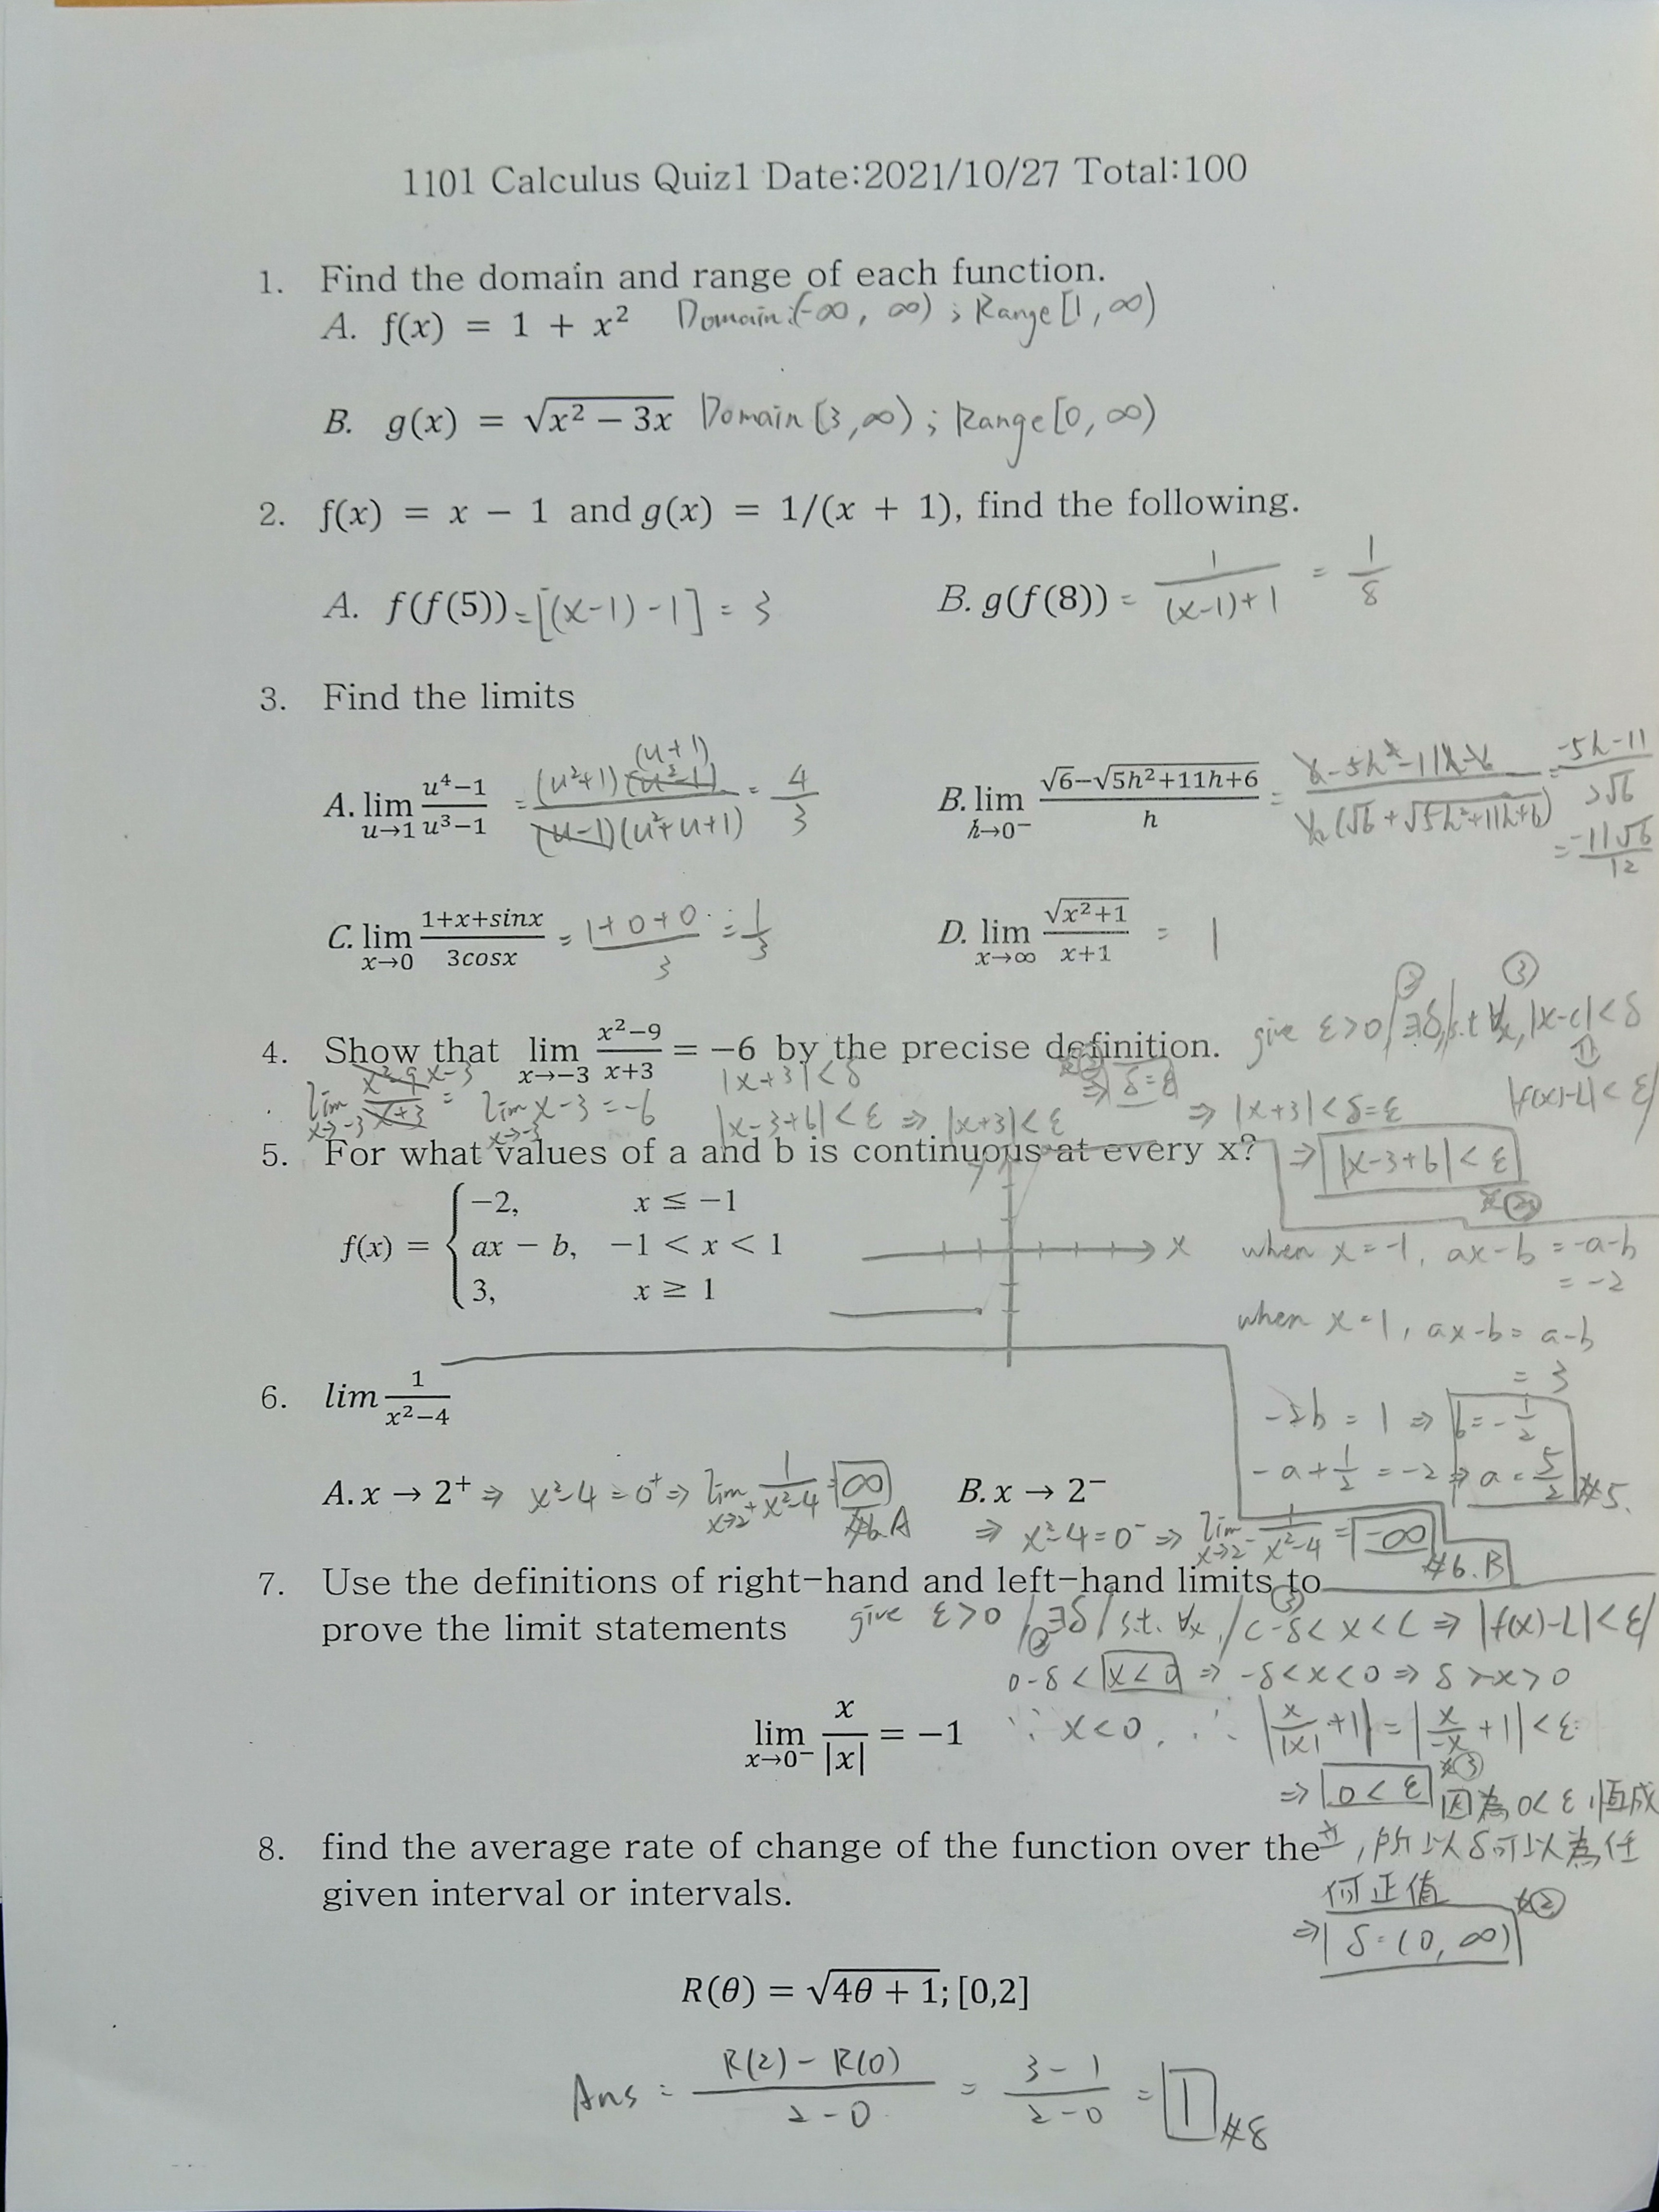 1101 Calculus Quiz1 Date:2021/10/27 Total:100
1. Find the domain and range of each function.
A. f(x) = 1 + x² Domain:(-∞, ∞) ; Range[1, ∞)
B. g(x) = √(x² − 3x) Domain[3,∞) ; Range[0, ∞)
2. f(x) = x − 1 and g(x) = 1/(x + 1), find the following.
A. f(f(5)) = [(x-1)-1] = 3
B. g(f(8)) = 1/((x-1)+1) = 1/8
3. Find the limits
A. lim u→1 (u⁴−1)/(u³−1) = (u²+1)(u²-1)(u+1)/((u-1)(u²+u+1)) = 4/3
B. lim h→0⁻ (√6−√(5h²+11h+6))/h = (6-5h²-11h-6)/(h(√6+√(5h²+11h+6))) = (-5h-11)/(2√6)
= -11√6/12
C. lim x→0 (1+x+sinx)/(3cosx) = (1+0+0)/3 = 1/3
D. lim x→∞ √(x²+1)/(x+1) = 1
4. Show that lim x→−3 (x²−9)/(x+3) = −6 by the precise definition.
give ε>0/∃δ/s.t ∀x, |x-c|<δ
② ③
⇒
|f(x)-L|<ε/
lim x→-3 (x²-9)/(x+3) x-3 = lim x→-3 x-3 = -6
|x+3|<δ
|x-3+6|<ε ⇒ |x+3|<ε
⇒ δ=ε
⇒ |x+3|<δ=ε
⇒ |x-3+6|<ε
5. For what values of a and b is continuous at every x?
f(x) = { −2, x ≤ −1
ax − b, −1 < x < 1
3, x ≥ 1
y
x
when x=-1, ax-b = -a-b
= -2
when x=1, ax-b = a-b
= 3
-2b = 1 ⇒ b = -1/2
-a+1/2 = -2 ⇒ a = 5/2 #5.
6. lim 1/(x²−4)
A. x → 2⁺ ⇒ x²-4 = 0⁺ ⇒ lim x→2⁺ 1/(x²-4) = ∞
#6.A
B. x → 2⁻
⇒ x²-4=0⁻ ⇒ lim x→2⁻ 1/(x²-4) = -∞
#6.B
7. Use the definitions of right-hand and left-hand limits to
prove the limit statements
give ε>0 /∃δ/ s.t. ∀x /c-δ<x<c ⇒ |f(x)-L|<ε/
② ③
0-δ<x<0 ⇒ -δ<x<0 ⇒ δ>-x>0
lim x→0⁻ x/|x| = −1
∵ x<0, ∴ |x/|x|+1| = |x/-x +1|<ε
⇒ 0<ε ③ 因為0<ε恒成
立,所以δ可以為任
何正值
⇒ δ=(0,∞) ②
8. find the average rate of change of the function over the
given interval or intervals.
R(θ) = √(4θ + 1); [0,2]
Ans = (R(2)-R(0))/(2-0) = (3-1)/(2-0) = 1 #8